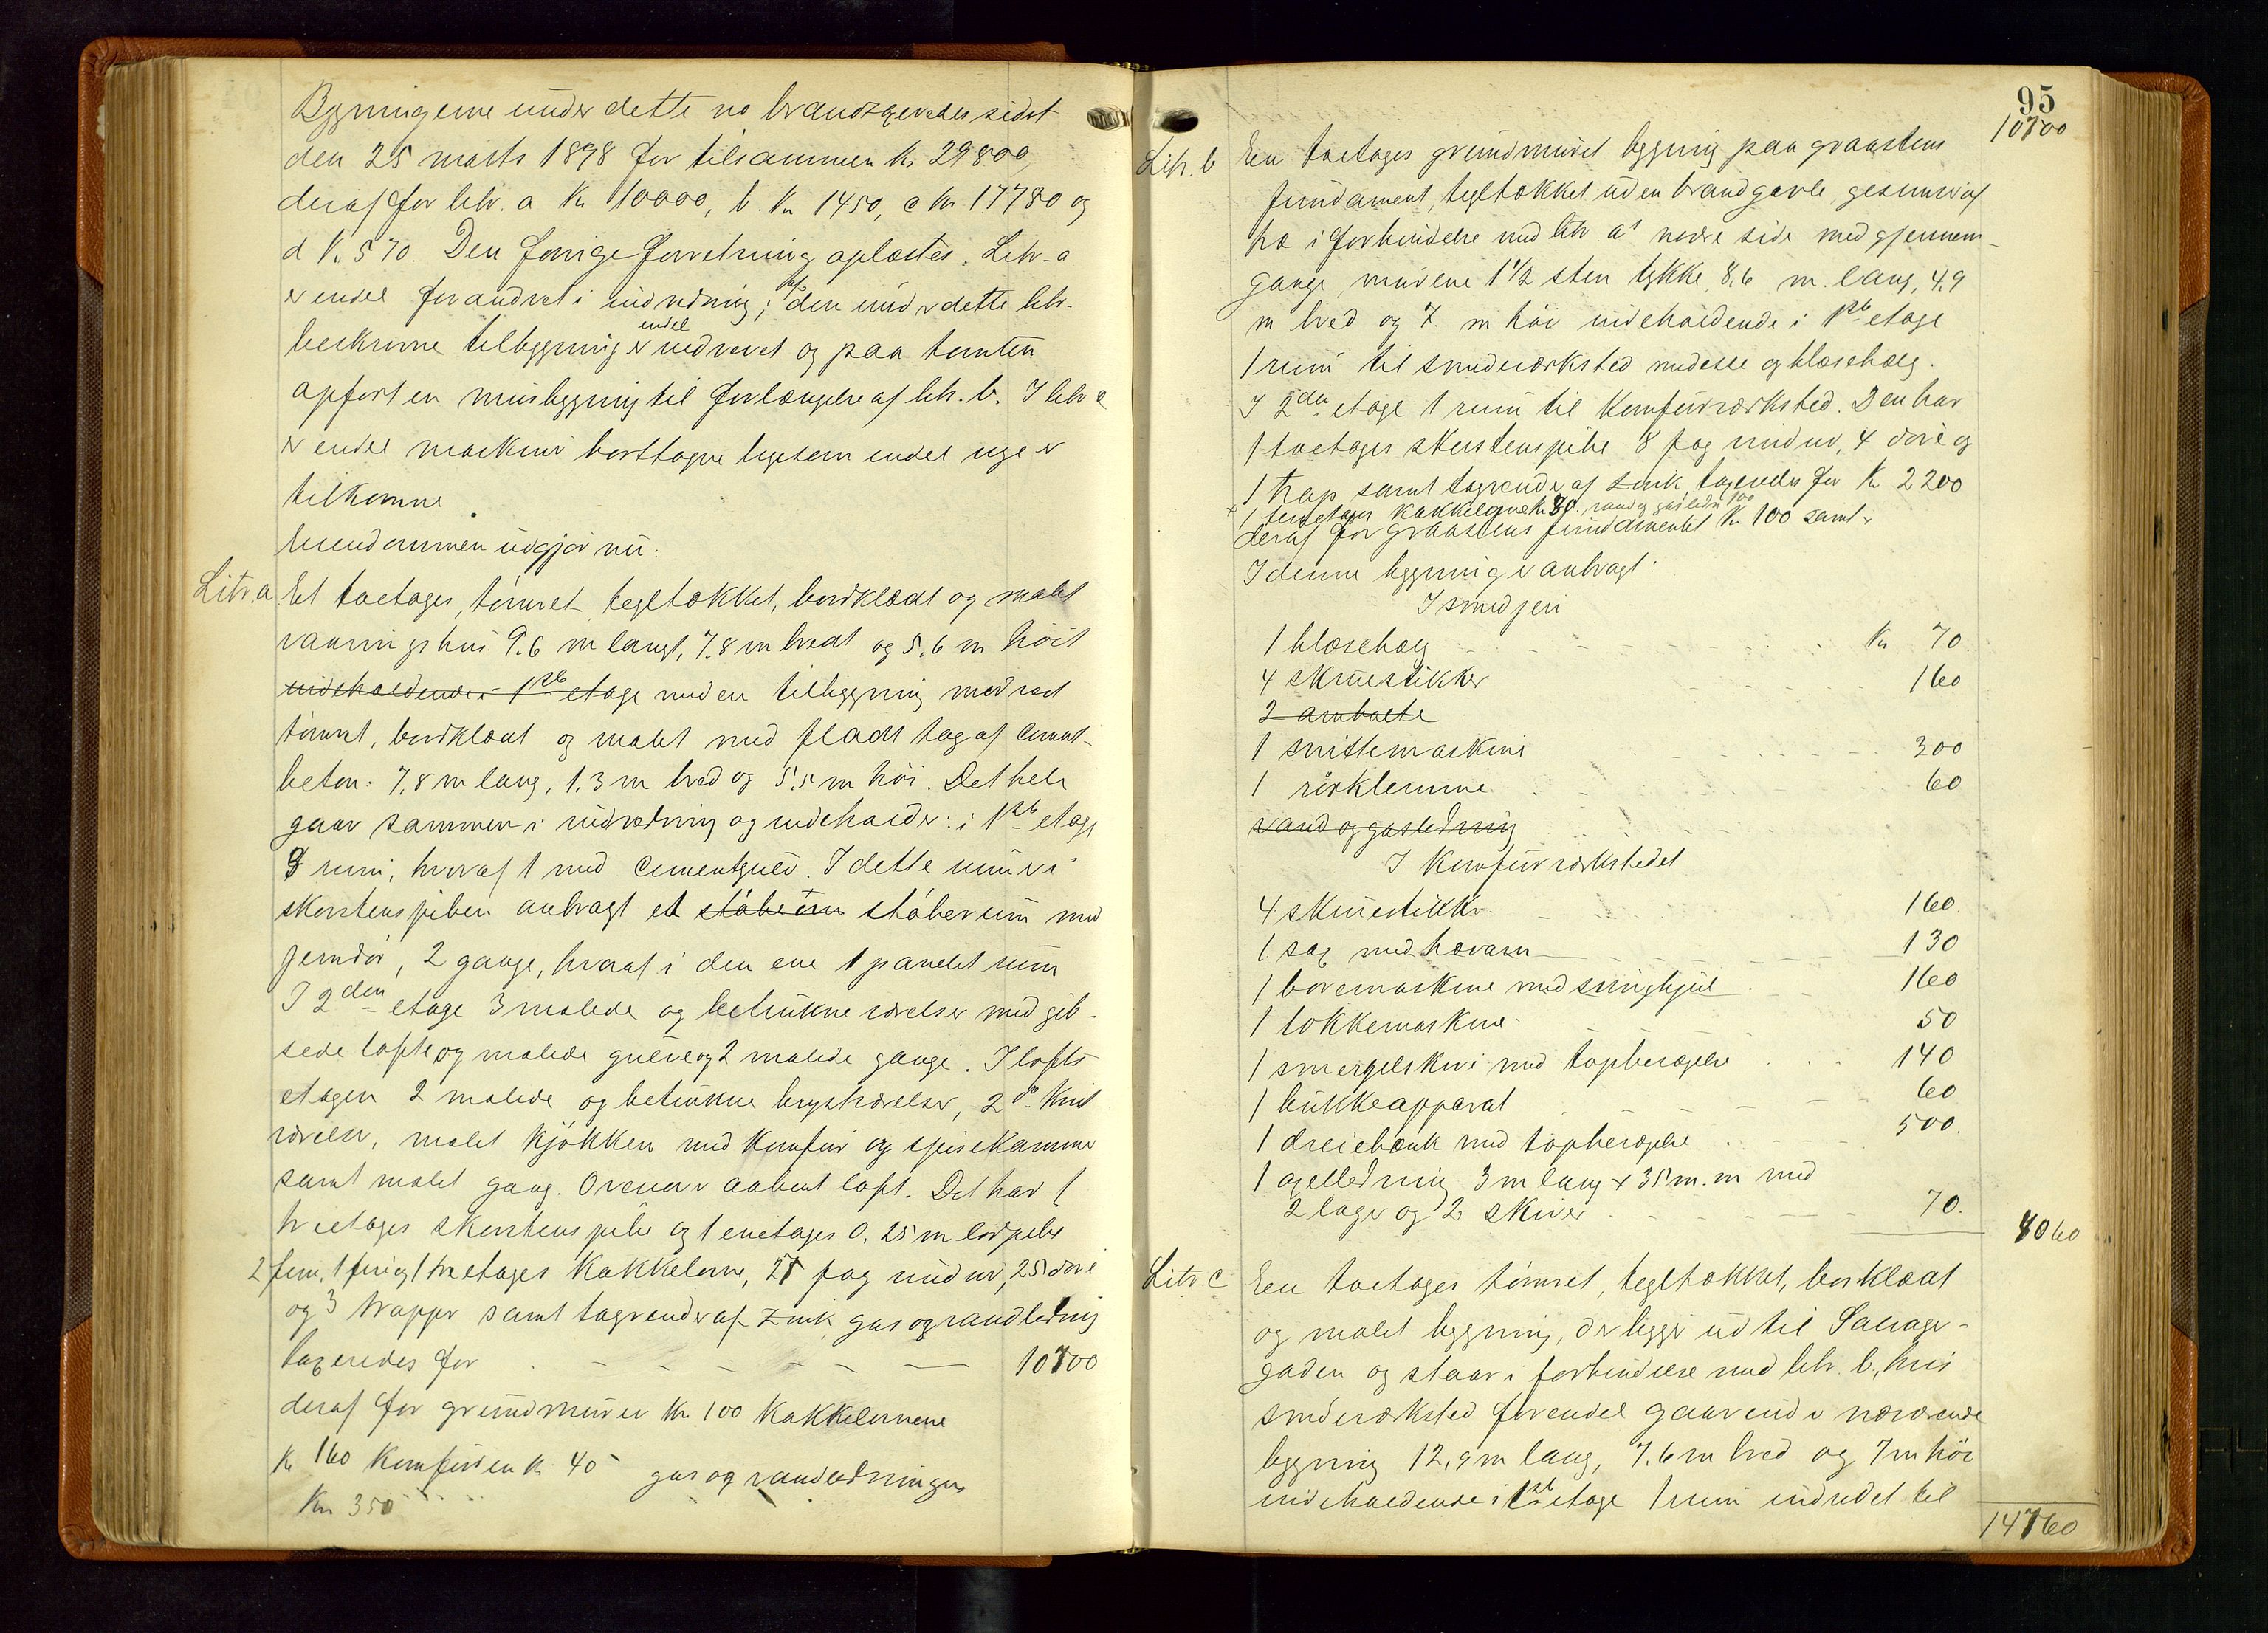 Bygningerne under dette no brandtaxeredes sidst
den 25 marts 1898 for tilsammen Kr 29800,
deraf for litr. a Kr 10000, b. Kr 1450, c Kr 17780 og
d Kr 570. Den forrige forretning oplæstes. Litr. a
er endel forandret i indredning; af den under dette litr.
beskrevne tilbygning er endel nedrevet og paa tomten
opført en murbygning til forlængelse af litr. b. I litr c
er endel maskiner borttagne ligesom endel nye er
tilkomne.
Eiendommen udgjør nu:
Litr. a Et toetages, tømret, tegltækket, bordklædt og malet
vaaningshus 9.6 m langt, 7.8 m bredt og 5,6 m høit
indeholdende i 1ste etage med en tilbygning mod
tømret, bordklædt og malet med fladt tag af cement-
beton. 7,8 m lang, 1,3 m bred og 5,5 m høi. Det hele
gaar sammen i indredning og indeholder: i 1ste etage
9 rum, hvoraf 1 med cementgulv. I dette rum er i
skorstenspiben anbragt et støbeovn støberum med
jerndør, 2 gange, hvoraf i den ene 1 panelet rum
I 2den etage 3 malede og betrukne værelser med gib-
sede lofte og malede gulve og 2 malede gange. I lofts
etagen 2 malede og betrukne brystværelser, 2 do kvist
værelser, malet kjøkken med komfur og spisekammer
samt malet gang. Over er aabent loft. Det har 1
treetages skorstenspibe og 1 enetages 0,25 m lødpibe
2 fem, 1 fire og 1 tre etages kakkelovne, 21 fag vinduer, 25 døre
og 3 trapper samt tagrender af zink, gas og vandledning
taxeredes for 10700
deraf for grundmuren Kr 100 kakkelovnene
Kr 160 komfuren Kr 40 gas og vandledningen
Kr 350
95
10700
Litr. b En toetages grundmuret bygning paa graastens
fundament, tegltækket uden brandgavle, gesimser af
træ i forbindelse med litr. a's nedre side med gjennem-
gange, murene 1 1/2 sten tykke, 8,6 m. lang, 4,9
m bred og 7. m høi indeholdende i 1ste etage
1 rum til smedværksted med esse og blæsebælg.
I 2den etage 1 rum til komfurværksted. Den har
1 toetages skorstenspibe 8 fag vinduer, 4 døre og
1 trap samt tagrender af zink taxeredes for Kr 2200
+ 1 kakkelovne Kr 30. vand og gasledn 100
deraf for graastens fundamentet Kr 100 samt +
I denne bygning er anbragt:
I smedjen
1 blæsebælg Kr 70.
4 skruestikker 160
2 ambolte
1 snittemaskine 300
1 rørklemme 60
vand og gasledning
I komfurværkstedet
4 skruestikker 160.
1 sag med hævarm 130
1 boremaskine med svinghjul 160
1 lokkemaskine 50
1 smergelskive med fodbevægelse 140
1 bukkeapparat 60
1 dreiebænk med fodbevægelse 500.
1 axelledning 3 m lang x 35 m.m med
2 lager og 2 skiver 70.
4060
Litr c En toetages tømret, tegltækket, bordklædt
og malet bygning, der ligger ud til
gaden og staar i forbindelse med litr. b, hvis
smedværksted for endel gaar ind i nærværende
bygning 12,9 m lang, 7,6 m bred og 7 m høi
indeholdende i 1ste etage 1 rum indredet til
14760